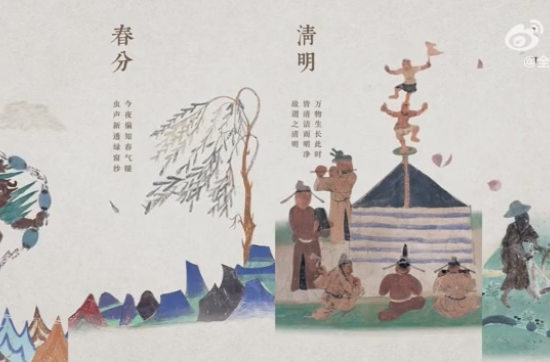 春分
今夜偏知春气暖
虫声新透绿窗纱
清明
万物生长此时
皆清洁而明净
故谓之清明
@全